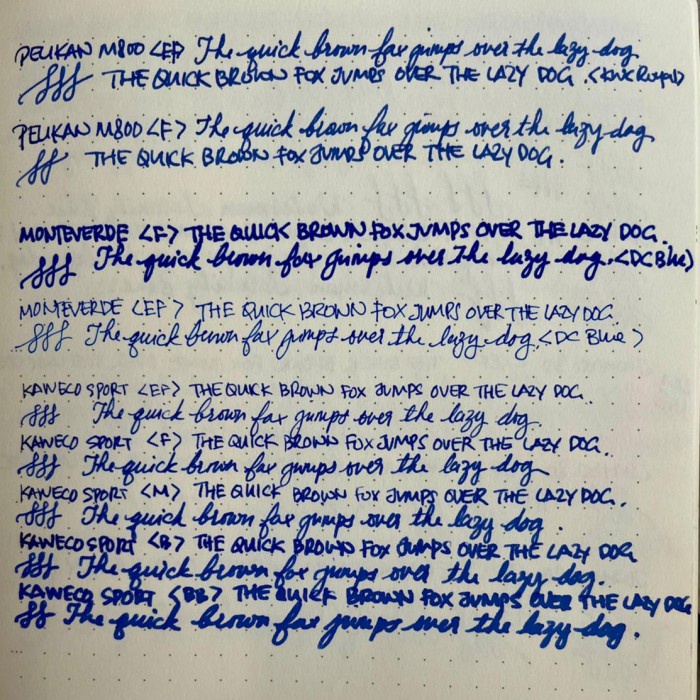 PELIKAN M800 <EF> The quick brown fox jumps over the lazy dog
fff THE QUICK BROWN FOX JUMPS OVER THE LAZY DOG.
PELIKAN M800 <F> The quick brown fox jumps over the lazy dog
ff THE QUICK BROWN FOX JUMPS OVER THE LAZY DOG.
MONTEVERDE <F> THE QUICK BROWN FOX JUMPS OVER THE LAZY DOG.
fff The quick brown fox jumps over the lazy dog. <DC Blue>
MONTEVERDE <EF> THE QUICK BROWN FOX JUMPS OVER THE LAZY DOG.
fff The quick brown fox jumps over the lazy dog. <DC Blue>
KAWECO SPORT <EF> THE QUICK BROWN FOX JUMPS OVER THE LAZY DOG.
fff The quick brown fox jumps over the lazy dog.
KAWECO SPORT <F> THE QUICK BROWN FOX JUMPS OVER THE LAZY DOG.
fff The quick brown fox jumps over the lazy dog
KAWECO SPORT <M> THE QUICK BROWN FOX JUMPS OVER THE LAZY DOG.
fff The quick brown fox jumps over the lazy dog.
KAWECO SPORT <B> THE QUICK BROWN FOX JUMPS OVER THE LAZY DOG
fff The quick brown fox jumps over the lazy dog.
KAWECO SPORT <BB> THE QUICK BROWN FOX JUMPS OVER THE LAZY DOG
ff The quick brown fox jumps over the lazy dog.